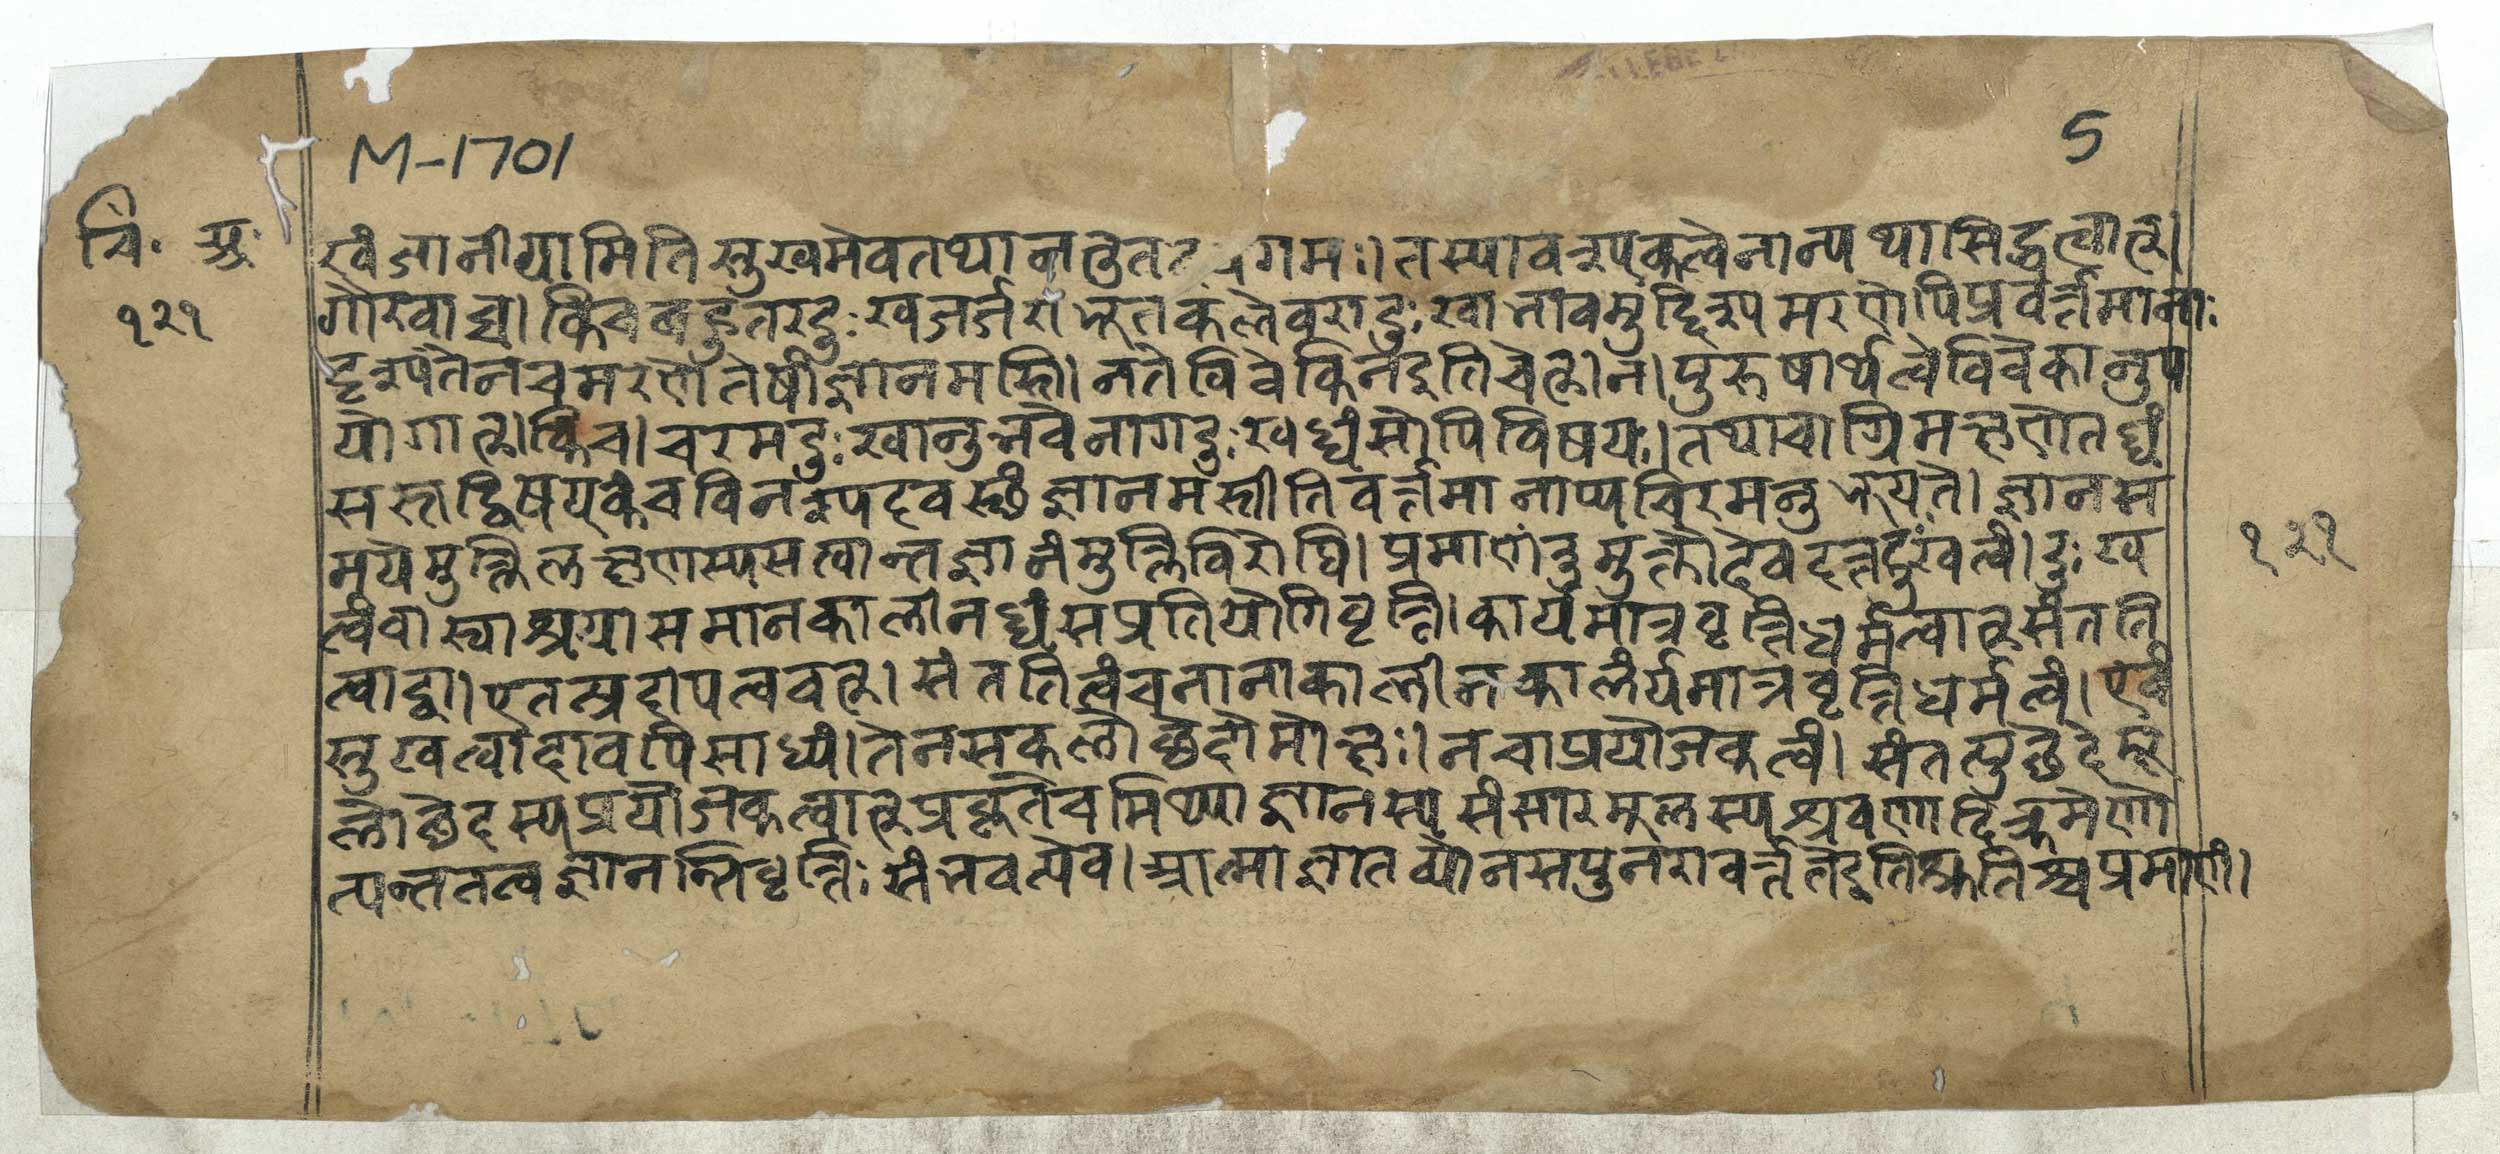 M-1701
5
चि. अ.
१२१
खं जानीयामिति सुखमेव तथा न तु गमः। तस्यावरूपकत्वेनान्यथासिद्धत्वात्।
गौरवाच्च। किंच बहुतरदुःखजर्जरीभूतकलेवरा दुःखाभावमुद्दिश्य मरणेपि प्रवर्त्तमानाः
दृश्यंते न च मरणे तेषां ज्ञानमस्ति। न ते विवेकिन इति चेत्। न। पुरुषार्थत्वे विवेकानुप
योगात्। किंच। चरमदुःखानुभवेनागदुःखध्वंसोपि विषयः। तथा चाग्रिमक्षणे तध्वं
सस्तद्विषयकं च विनश्यदवस्थं ज्ञानमस्तीति वर्त्तमानाप्यचिरमनुभूयते। ज्ञानस
मये मुक्तिलक्षणस्य सत्वान्त ज्ञानं मुक्तिविरोधि। प्रमाणं तु मुक्तौ देवदत्तदुःखत्वं। दुःख
त्वं वा स्वाश्रयासमानकालीनध्वंसप्रतियोगिवृत्ति। कार्यमात्रवृत्तिधर्मत्वात् संतति
त्वाद्वा। एतत्प्रदीपत्ववत्। संततित्वं च नानाकालीनकार्यमात्रवृत्तिधर्मत्वं। एवं
सुखत्वादावपि साध्यं। तेन सकलोच्छेदो मोक्षः। न चाप्रयोजकत्वं। संतत्युच्छेदे मू
लोच्छेदस्य प्रयोजकत्वात् प्रकृते च मिथ्याज्ञानस्य संसारमूलस्य श्रवणादिक्रमेणो
त्पन्नतत्वज्ञानान्निवृत्तिः संभवत्येव। आत्मा ज्ञातव्यो न स पुनरावर्त्तत इति श्रुतिश्च प्रमाणं।
१२१